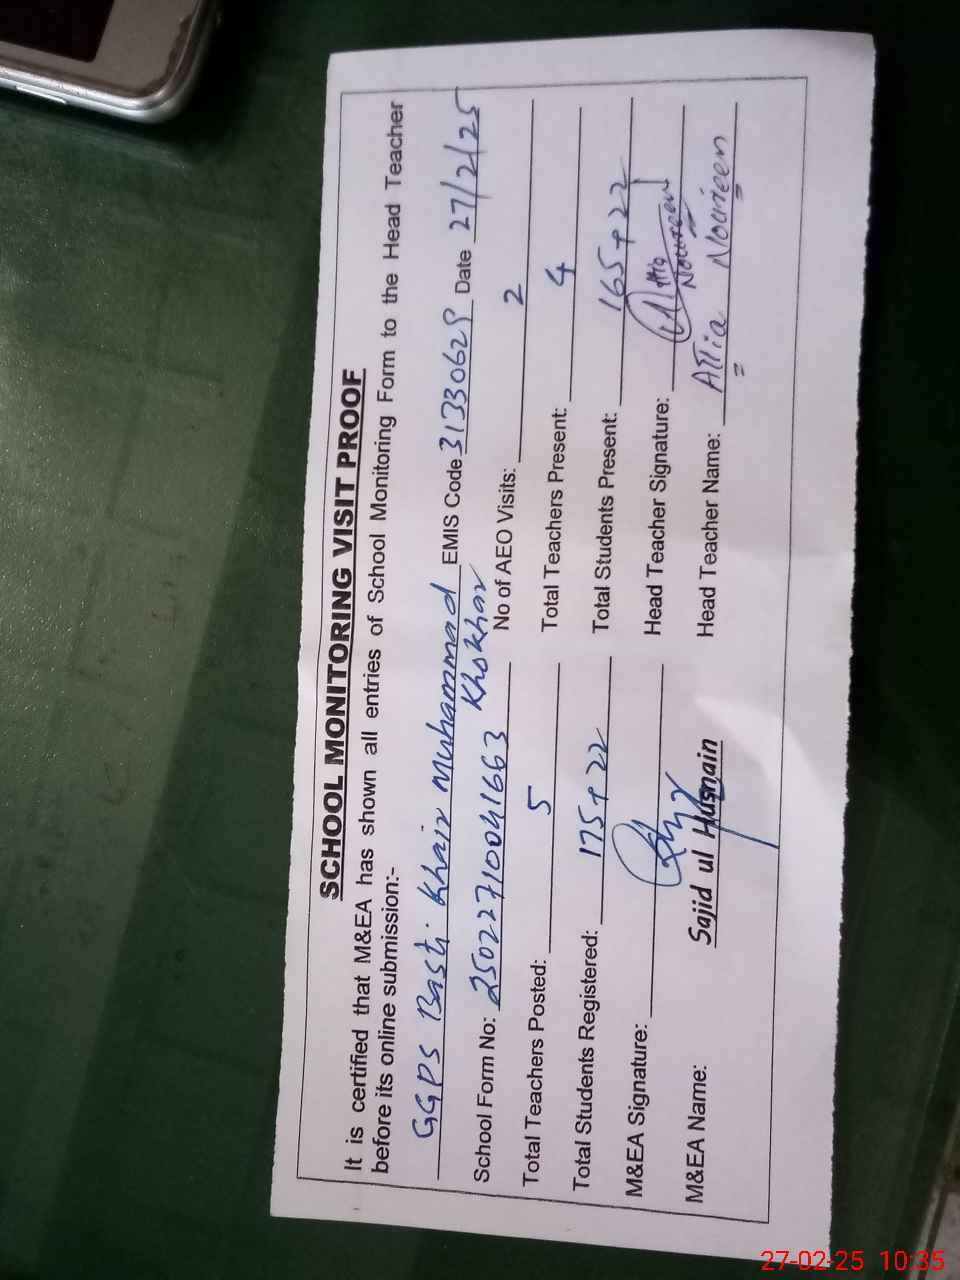 SCHOOL MONITORING VISIT PROOF
It is certified that M&EA has shown all entries of School Monitoring Form to the Head Teacher
before its online submission:-
GGPS Basti Khair Muhammad Khokhar EMIS Code 31330628 Date 27/2/25
School Form No: 25022710041663 No of AEO Visits: 2
Total Teachers Posted: 5 Total Teachers Present: 4
Total Students Registered: 175+22 Total Students Present: 165+22
M&EA Signature: Head Teacher Signature: Noureen
M&EA Name: Sajid ul Husnain Head Teacher Name: Attia Noureen
27-02-25 10:35